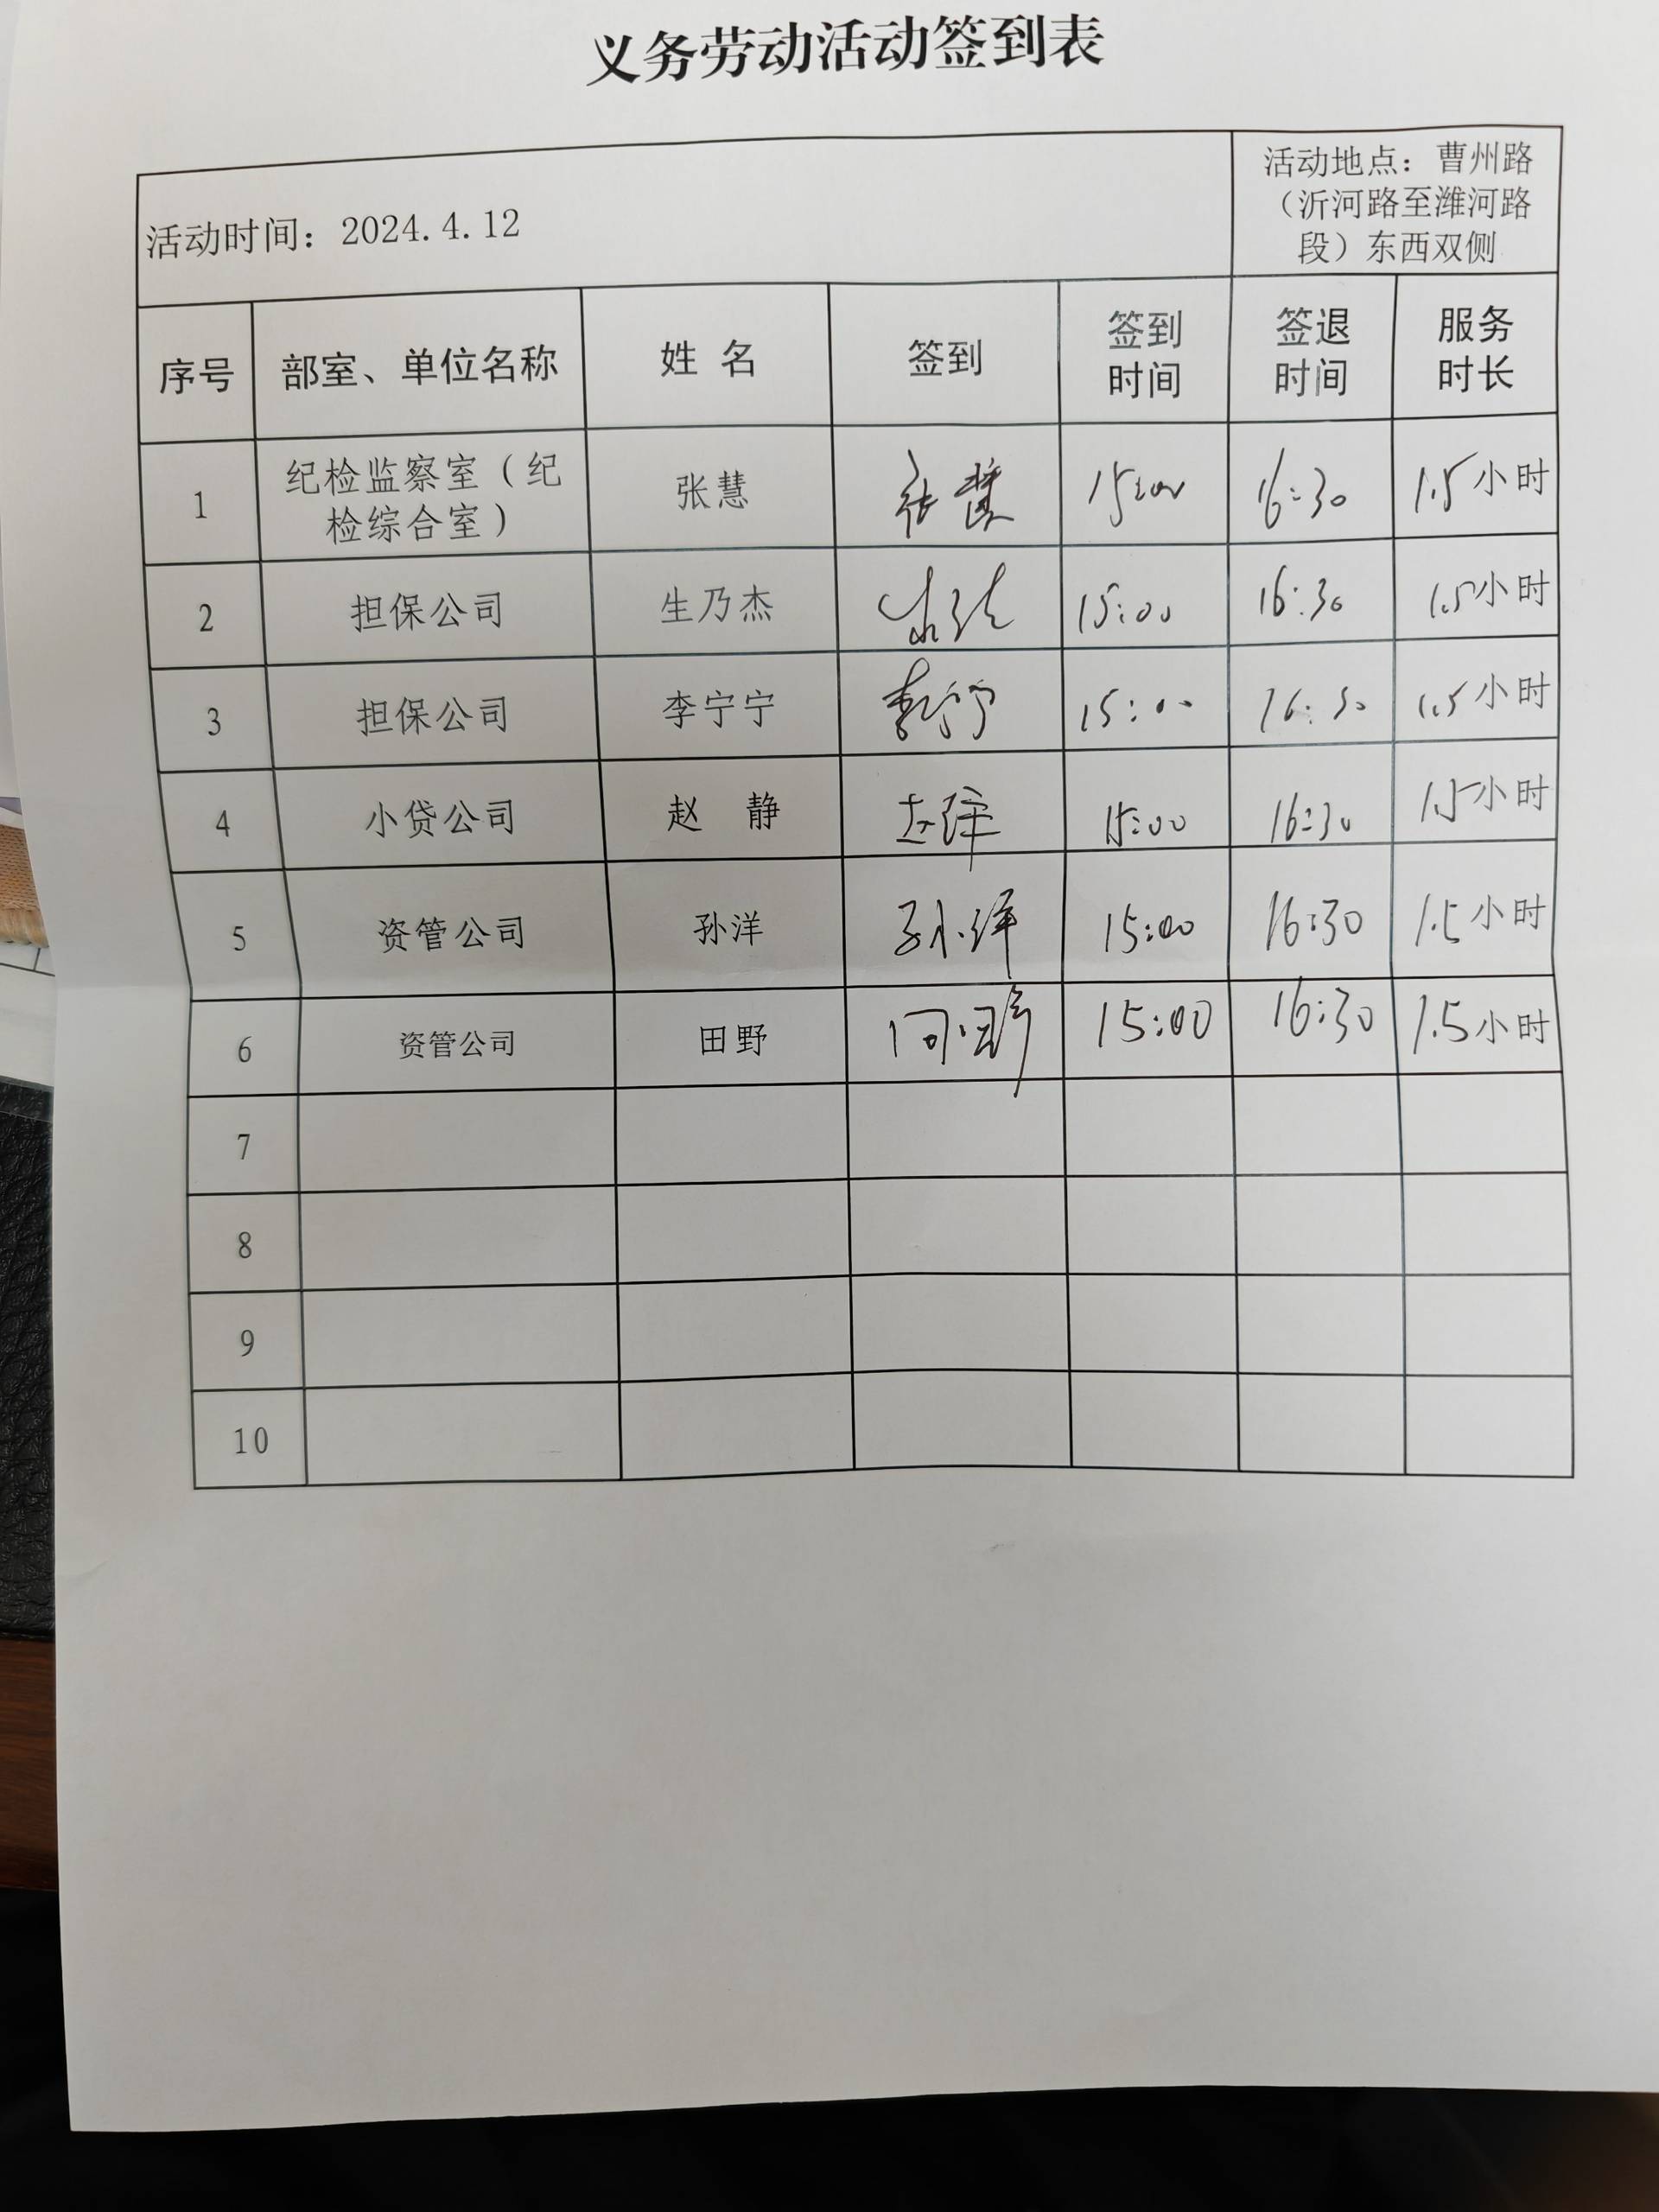 义务劳动活动签到表
活动时间：2024.4.12
活动地点：曹州路
（沂河路至潍河路
段）东西双侧
序号 部室、单位名称 姓 名 签到 签到时间 签退时间 服务时长
1 纪检监察室（纪检综合室） 张慧 张慧 15:00 16:30 1.5小时
2 担保公司 生乃杰 15:00 16:30 1.5小时
3 担保公司 李宁宁 李宁宁 15:00 16:30 1.5小时
4 小贷公司 赵 静 赵静 15:00 16:30 1.5小时
5 资管公司 孙洋 孙洋 15:00 16:30 1.5小时
6 资管公司 田野 15:00 16:30 1.5小时
7
8
9
10